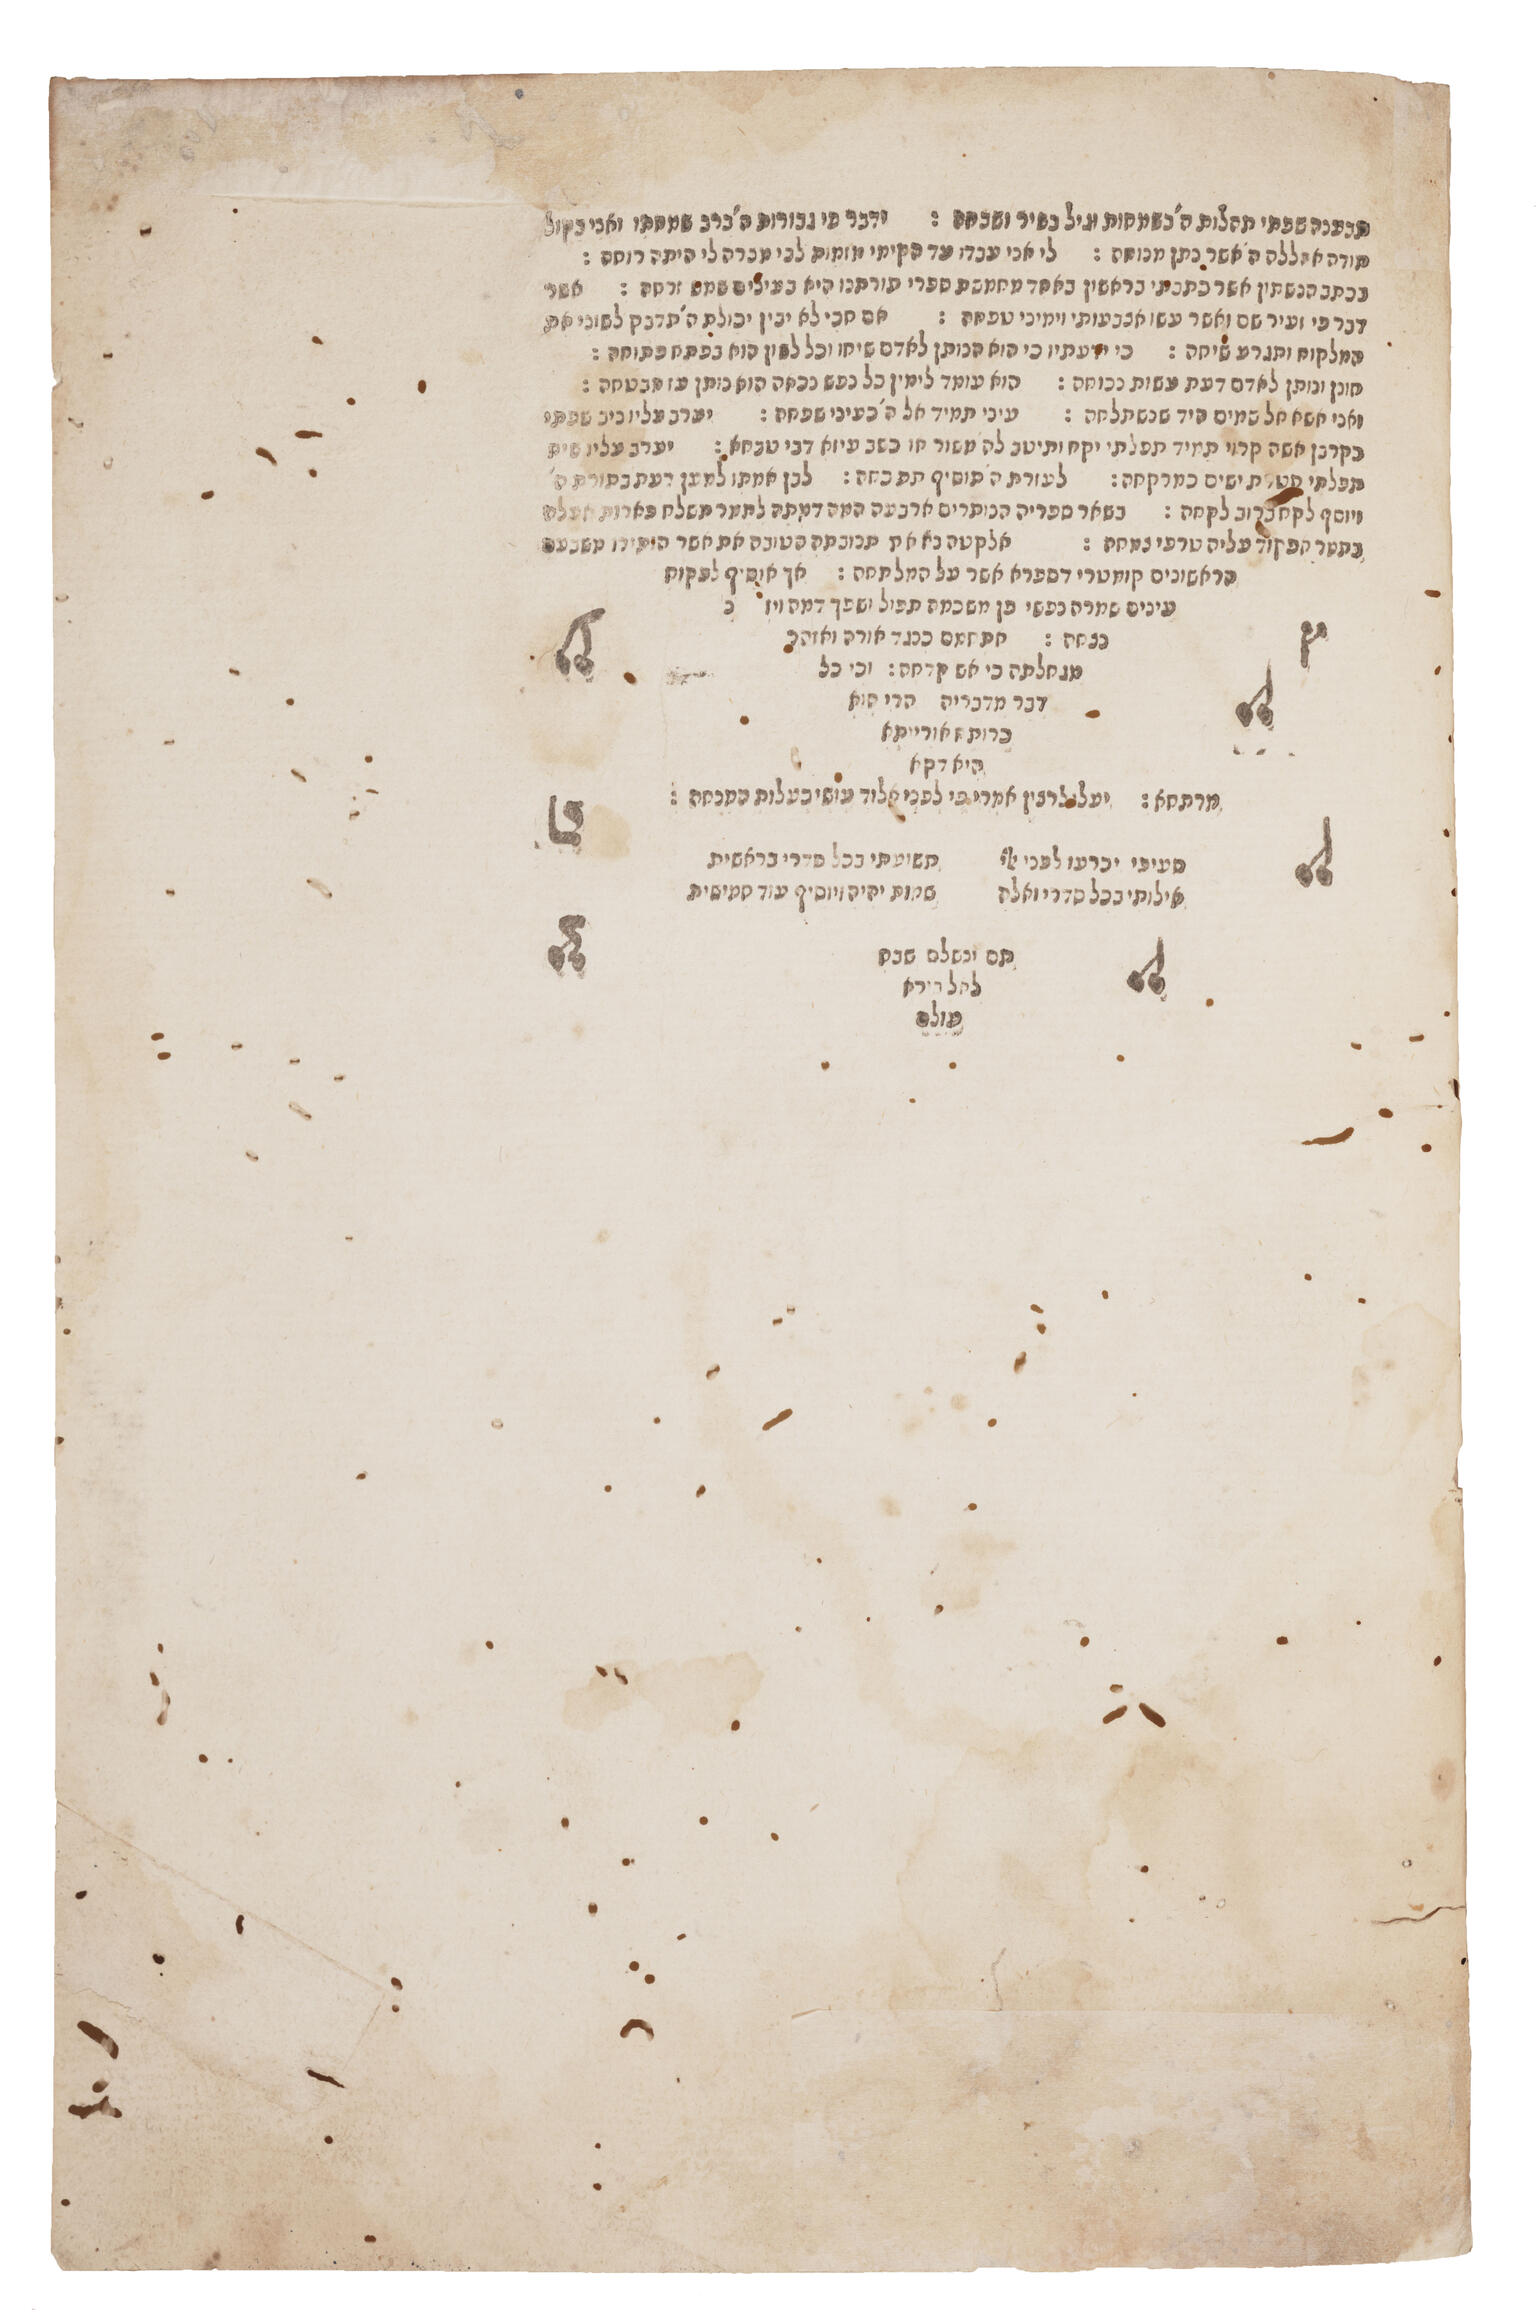 תבענה שפתי תהלות ה' בשמחות וגיל בשיר ושבחה : ידבר פי גבורות ה' ברב שמחתו ואני בקול
תודה אהללה ה' אשר נתן מנוחה : לי אני עבדו עד הקימי מזמות לבי מכרה לי היתה רוחה :
בכתב הנשתון אשר כתבתי בראשון באחד מחמשת ספרי תורתנו היא בעילים שמש זרחה : אשר
דבר פי זעיר שם ואשר עשו אצבעותי וימיני טפחה : אם חכי לא יבין יכולת ה' תדבק לשוני את
המלקוח ותגרע שיחה : כי ידעתיו כי הוא הנותן לאדם שיחו וכל לשון הוא בפתח פתוחה :
חונן ונותן לאדם דעת עשות נכוחה : הוא עומד לימין כל נפש נכאה הוא נותן עז מבטחה :
ואני אשא אל שמים היד שנשתלחה : עיני תמיד אל ה' כעיני שפחה : יערב עליו ניב שפתי
כקרבן אשה קרוי תמיד תפלתי יקח ותיטב לה' משור או כשב עיזא דבי טבחא : יערב עליו שיח
תפלתי קטרת ישים כמרקחה : לעזרת ה' תוסיף תת כחה : לכן אמתו למען דעת בתורת ה'
ויוסף לקח ברוב לקחה : בשאר ספריה הנותרים ארבעה המה דמתה לתמר תשלח פארות אעלה
בתמר הפקוד עליה טרפי צמחה : אלקטה נא את תנובתה הטובה את אשר הותירו משבעם
הראשונים קומטרי דספרא אשר על המלתחה : אך אוסיף לפקוח
עינים שמרה נפשי פן משכמה תפול ושפך דמה ויז נ
נצחה : תתחמם כנגד אורה ואזהר
מגחלתה כי אש קדחה : וכי כל
דבר מדבריה הדי הוא
כרותח אורייתא
היא דקא
מרתחא : יעלו לרצון אמרי פי לפני אלוד עושי בעלות המנחה :
סעיפי יכרעו לפני אל תשועתי בכל סדרי בראשית
אילותי בכל סדרי ואלה שמות יהיה ויוסיף עוד חמישית
תם ונשלם שבח
לאל בורא
עולם